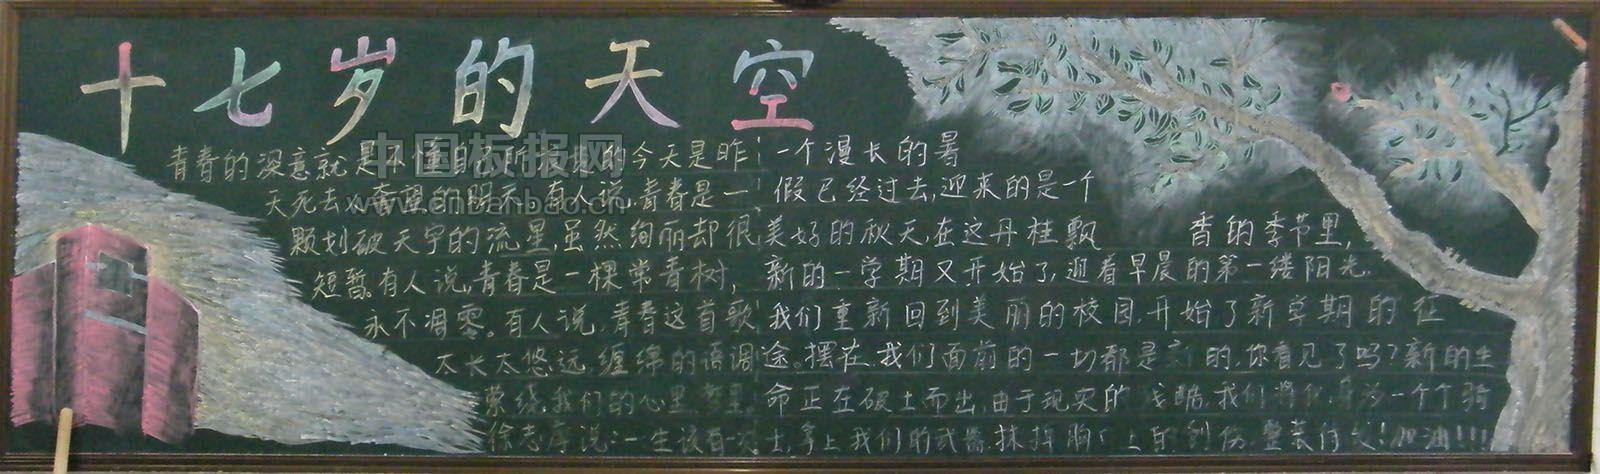 十七岁的天空
青春的深意就是不懂自己所 的今天是昨
天死去 奢望的明天。有人说,青春是一
颗划破天宇的流星,虽然绚丽却很
短暂。有人说,青春是一棵常青树,
永不凋零。有人说,青春这首歌
太长太悠远,缠绵的语调
萦绕我们的心里
徐志摩说:一生该有一次
一个漫长的暑
假已经过去,迎来的是一个
美好的秋天,在这丹桂飘 香的季节里,
新的一学期又开始了,迎着早晨的第一缕阳光
我们重新回到美丽的校园,开始了新学期的征
途。摆在我们面前的一切都是新的,你看见了吗?新的生
命正在破土而出,由于现实的残酷,我们将化身为一个个骑
士,拿上我们的武器,抹掉胸口上的创伤,整装待发!加油!!!
中国板报网